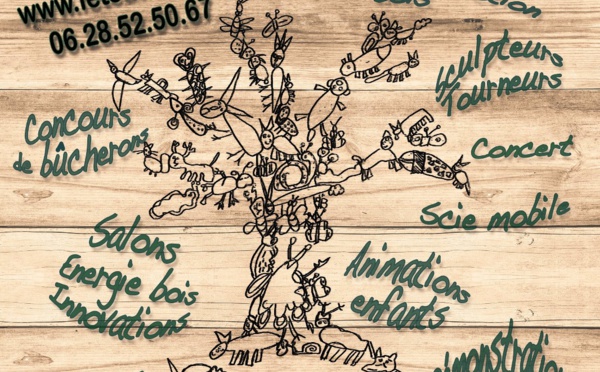 06.28.52.50.67
Sculpteurs
Tourneurs
Concours
de bûcherons
Concert
Scie mobile
Salons
Energie bois
Innovations
Animations
enfants